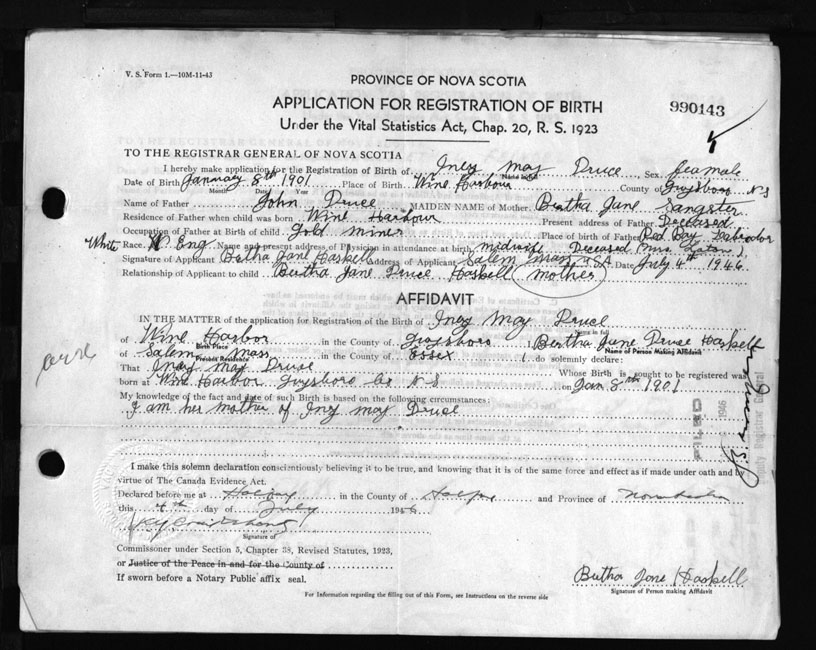 V. S. Form 1.—10M-11-43
PROVINCE OF NOVA SCOTIA
APPLICATION FOR REGISTRATION OF BIRTH 990143
Under the Vital Statistics Act, Chap. 20, R. S. 1923
TO THE REGISTRAR GENERAL OF NOVA SCOTIA
I hereby make application for the Registration of Birth of Inez May Druce Sex feamale
Name in full
Date of Birth January 8th 1901 Place of Birth Wine Harbour County of Guysboro N S
Month Date Year
Name of Father John Druce MAIDEN NAME of Mother Bertha Jane Sangster
Residence of Father when child was born Wine Harbour Present address of Father Deceased
Occupation of Father at Birth of child Gold miner Place of birth of Father Red Bay Labrador
White Race W. Eng Name and present address of Physician in attendance at birth midwife Deceased Mrs.
Signature of Applicant Bertha Jane Haskell Address of Applicant Salem Mass USA Date July 4th 1946
Relationship of Applicant to child Bertha Jane Druce Haskell mother
AFFIDAVIT
IN THE MATTER of the application for Registration of the Birth of Inez May Druce
Name in full
of Wine Harbor in the County of Guysboro I Bertha Jane Druce Haskell
Birth Place Name of Person Making Affidavit
of Salem Mass in the County of Essex 1 do solemnly declare:
Present Residence
That Inez May Druce Whose Birth is sought to be registered was
born at Wine Harbor Guysboro Co N S on Jan 8th 1901
My knowledge of the fact and date of such Birth is based on the following circumstances:
I am her mother of Inez May Druce
I make this solemn declaration conscientiously believing it to be true, and knowing that it is of the same force and effect as if made under oath and by
virtue of The Canada Evidence Act.
Declared before me at Halifax in the County of Halifax and Province of Nova Scotia
this 4th day of July 1946
Signature of
Commissioner under Section 5, Chapter 38, Revised Statutes, 1923,
or Justice of the Peace in and for the County of
If sworn before a Notary Public affix seal.
Bertha Jane Haskell
Signature of Person making Affidavit
For Information regarding the filling out of this Form, see Instructions on the reverse side